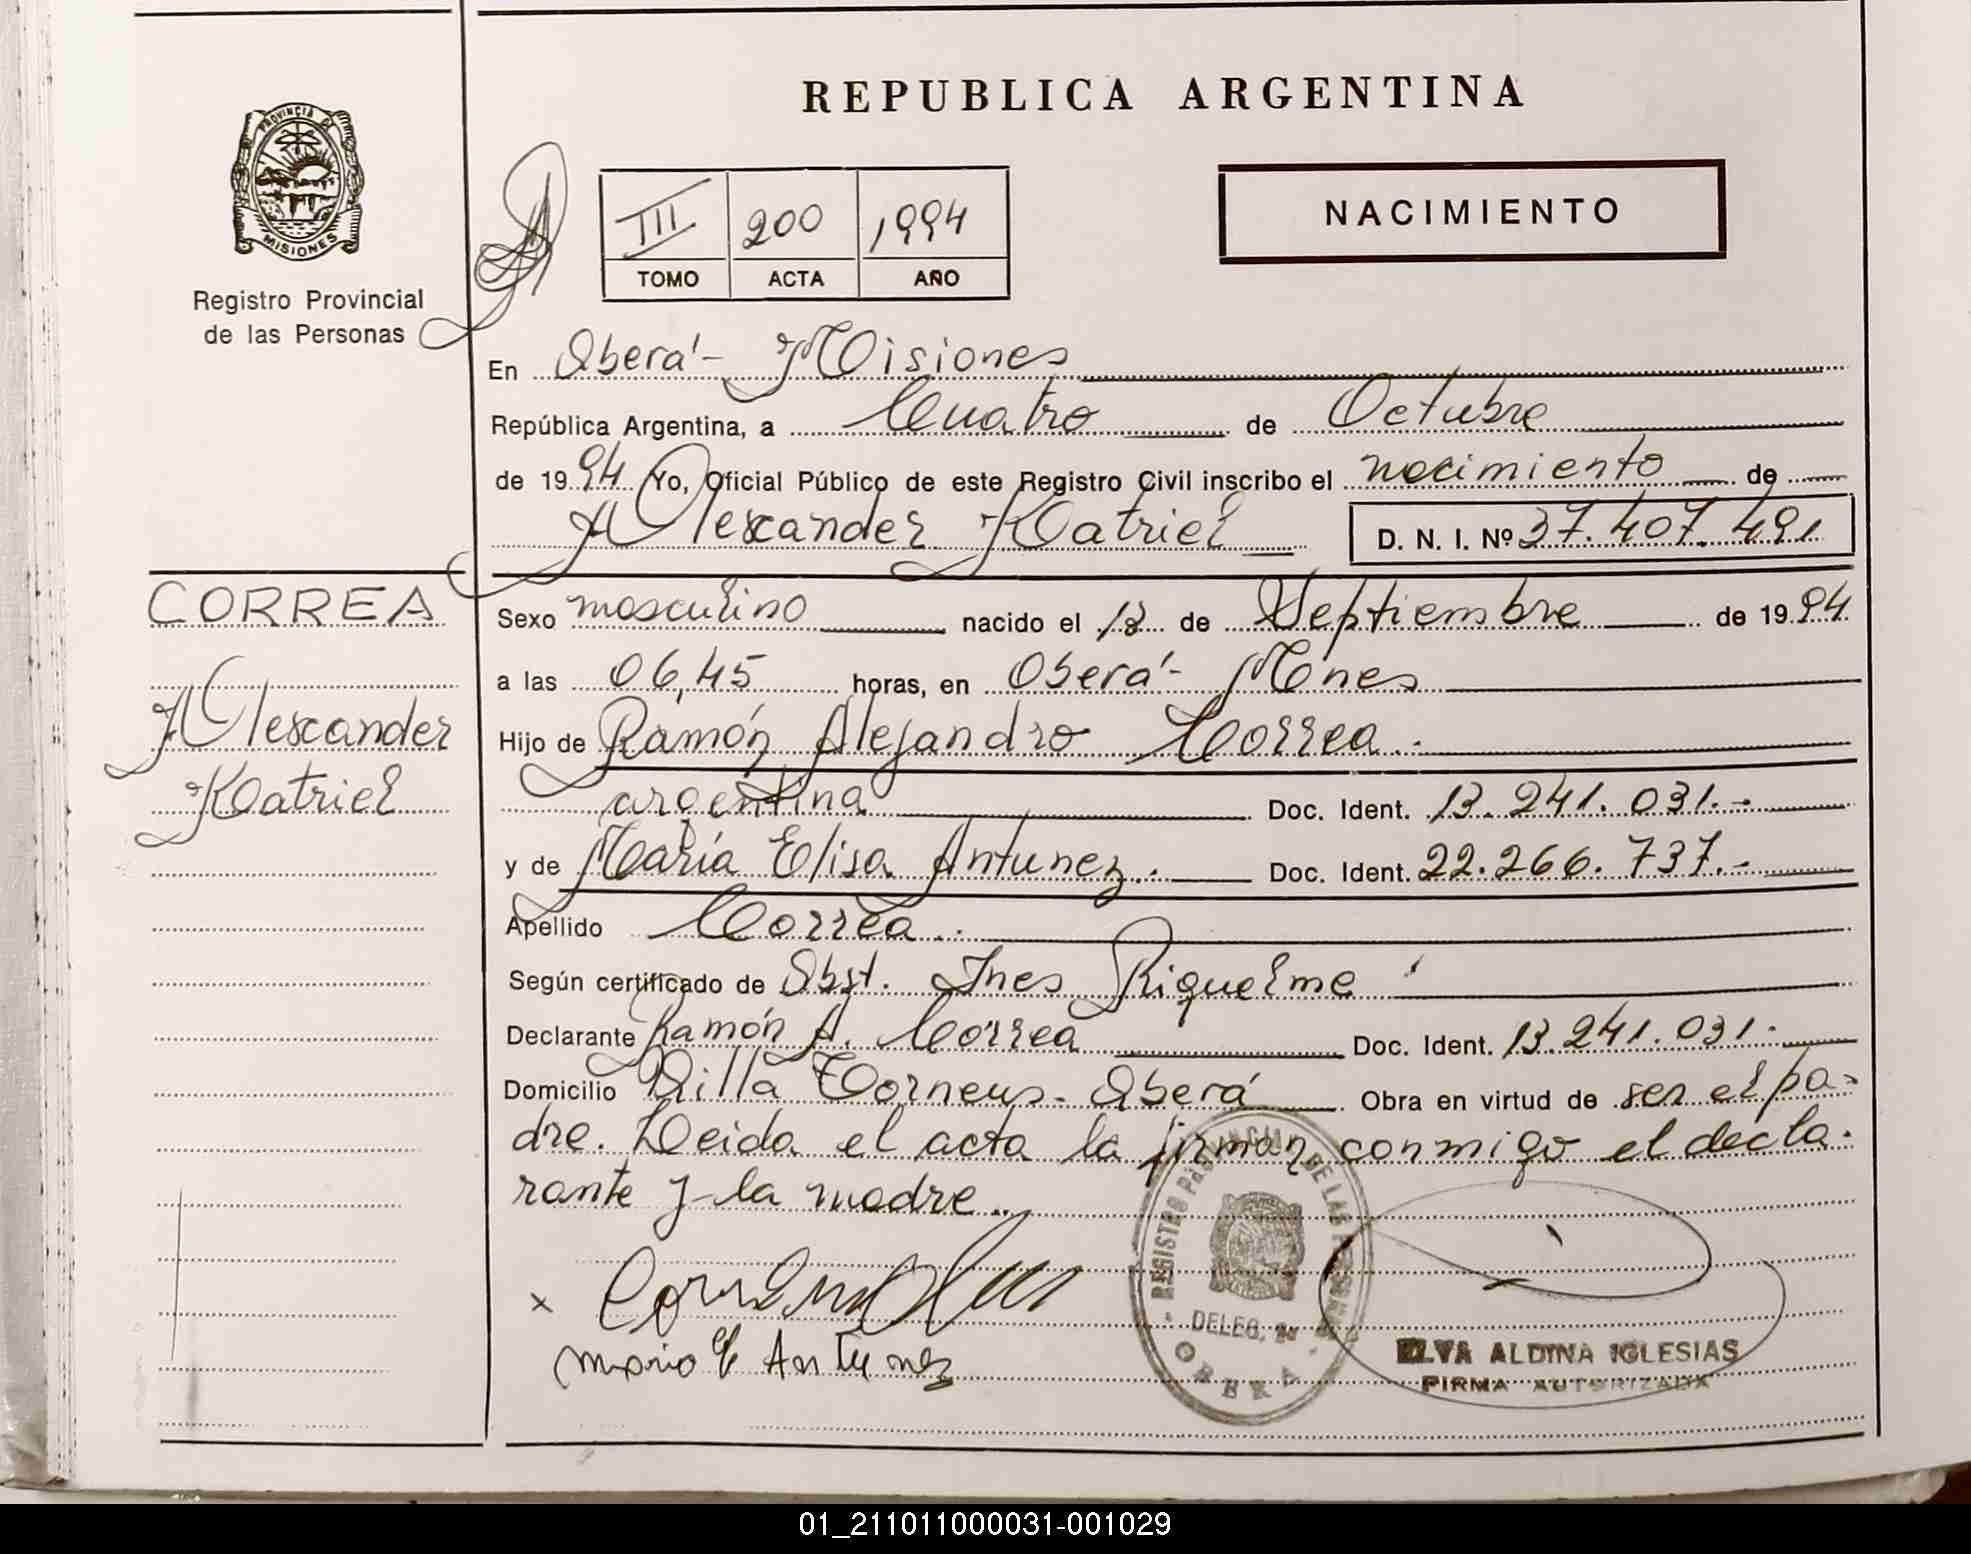 REPUBLICA ARGENTINA
PROVINCIA DE
MISIONES
Registro Provincial
de las Personas
III 200 1994
TOMO ACTA AÑO
NACIMIENTO
En Oberá - Misiones
República Argentina, a Cuatro de Octubre
de 1994 Yo, Oficial Público de este Registro Civil inscribo el nacimiento de
Alexander Katriel D. N. I. Nº 37.407.491
CORREA
Alexander
Katriel
Sexo masculino nacido el 18 de Septiembre de 1994
a las 06,45 horas, en Oberá - Mnes
Hijo de Ramón Alejandro Correa.
argentina Doc. Ident. 13.241.031.-
y de María Elisa Antunez. Doc. Ident. 22.266.737.-
Apellido Correa.
Según certificado de Obst. Ines Riquelme
Declarante Ramón A. Correa Doc. Ident. 13.241.031.
Domicilio Villa Torneus - Oberá Obra en virtud de ser el pa-
dre. Leida el acta la firman conmigo el decla-
rante y la madre..
x
Maria E Antunez
REGISTRO PROVINCIAL DE LAS PERSONAS
DELEG.
OBERA
ELVA ALDINA IGLESIAS
FIRMA AUTORIZADA
01_211011000031-001029